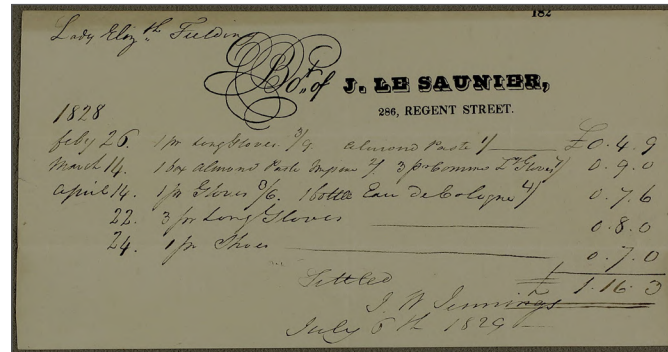 182
Lady Eliz.th Fielding
Bo.t of J. LE SAUNIER,
286, REGENT STREET.
1828
Feby 26. 1 pr Long Gloves 3/9 Almond Paste 1/ £0.4.9
March 14. 1 box Almond Paste 2/ 3 pr L Gloves 7/ 0.9.0
April 14. 1 pr Gloves 3/6. 1 bottle Eau de Cologne 4/ 0.7.6
22. 3 pr Long Gloves 0.8.0
24. 1 pr Shoes 0.7.0
£ 1.16.3
Settled
J W Jennings
July 5th 1829